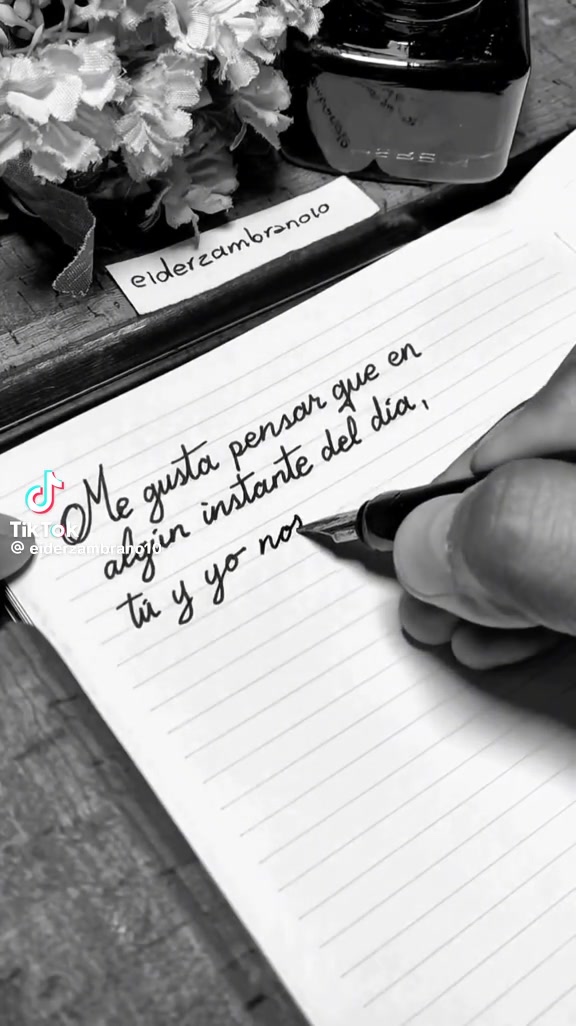 eiderzambrano10
Me gusta pensar que en
algún instante del día,
tú y yo nos
TikTok
@ eiderzambrano10